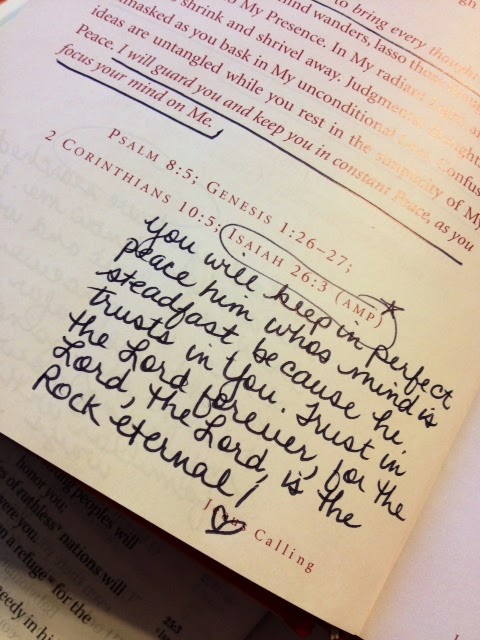 to bring every thought
mind wanders, lasso those
into My Presence. In My radiant
shrink and shrivel away. Judgmental thoughts
unmasked as you bask in My unconditional
ideas are untangled while you rest in the simplicity of My
Peace. I will guard you and keep you in constant Peace, as you
focus your mind on Me.
PSALM 8:5; GENESIS 1:26–27;
2 CORINTHIANS 10:5; ISAIAH 26:3 (AMP)
you will keep in perfect
peace him whos mind is
steadfast because he
trusts in you. Trust in
the Lord forever, for the
Lord, the Lord, is the
Rock eternal!
Jesus Calling
peoples will
honor you;
of ruthless nations will
a refuge for the
needy in his
25:3